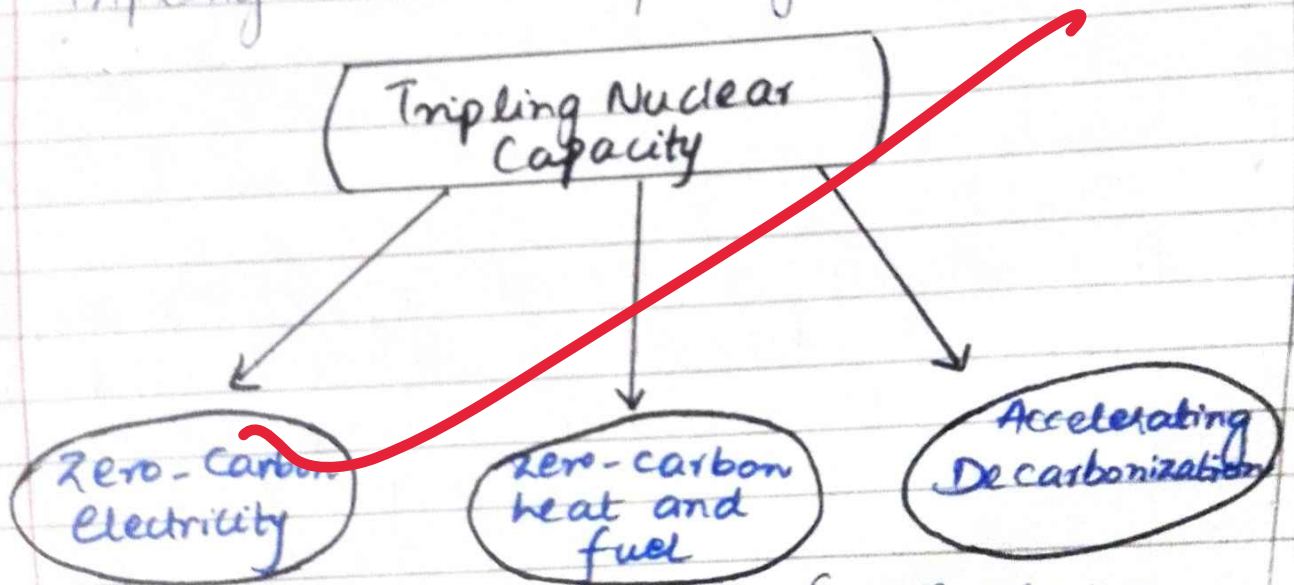 Tripling Nuclear
Capacity
Zero-Carbon
electricity
zero-carbon
heat and
fuel
Accelerating
Decarbonization